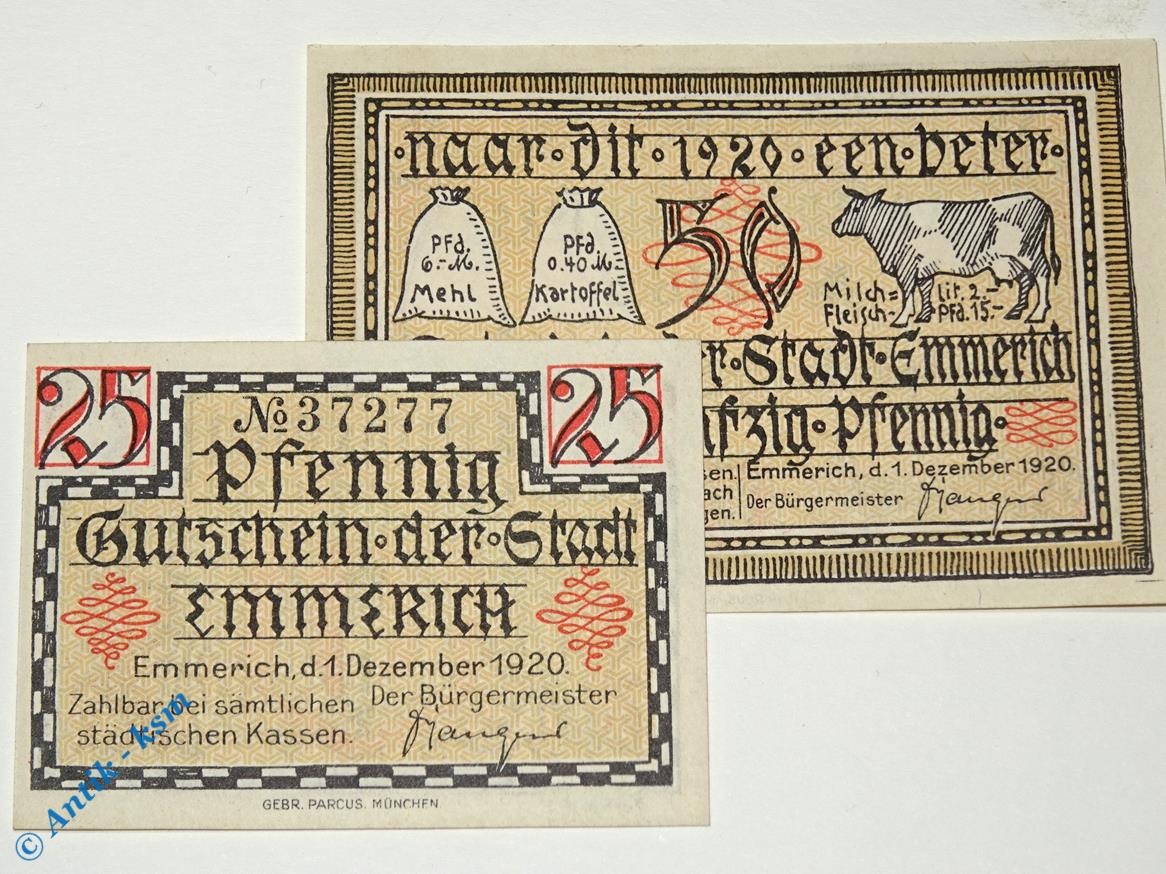 ·naar·dit·1920·een·beter·
Pfd.
6.-M.
Mehl
Pfd.
0.40 M.
Kartoffel
50
Milch= Lit. 2.-
Fleisch- Pfd. 15.-
r·Stadt·Emmerich
fzig·Pfennig·
sen.
ach
gen.
Emmerich, d. 1. Dezember 1920.
Der Bürgermeister
25
25
№ 37277
Pfennig
Gutschein·der·Stadt
EMMERICH
Emmerich, d. 1. Dezember 1920.
Zahlbar bei sämtlichen
städtischen Kassen.
Der Bürgermeister
GEBR. PARCUS. MÜNCHEN
© Antik - ksm